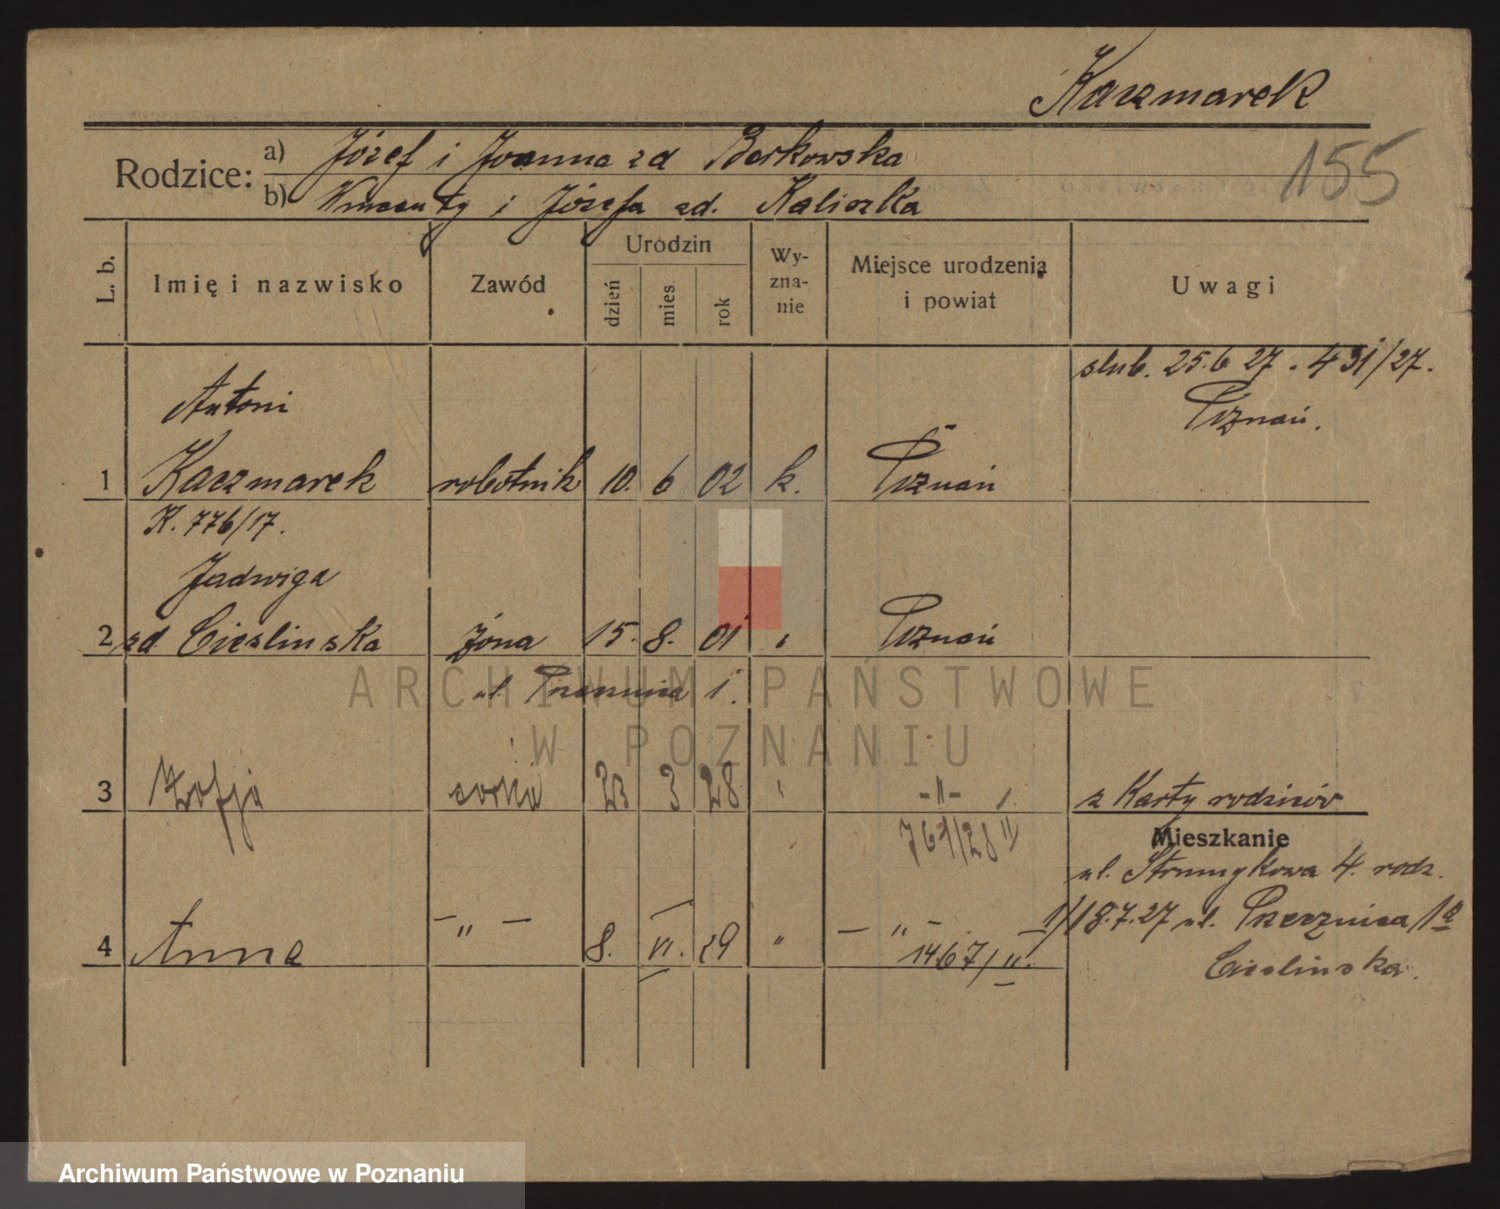 Kaczmarek
155
Rodzice:
a) Józef i Joanna zd Borkowska
b) Wincenty i Józefa zd. Kaliszka
L. b.
Imię i nazwisko
Zawód
Urodzin
dzień
mies.
rok
Wy-
zna-
nie
Miejsce urodzenia
i powiat
Uwagi
slub. 25.6 27. 431/27.
Poznań.
Antoni
1 Kaczmarek robotnik 10. 6 02 k. Poznań
K. 776/17.
Jadwiga
2 zd Cieslinska żona 15. 8. 01 " Poznań
ul. 1.
3 Zofja corka 23 3 28 " -"-
z Karty rodziców
767/28 II
Mieszkanie
ul. Strumykowa 4. rodz.
4 Anna — " — 8. VI. 29 " — " —
1467/II.
1/18.7.27 ul. 1a
Cieslinska.
ARCHIWUM PAŃSTWOWE
W POZNANIU
Archiwum Państwowe w Poznaniu